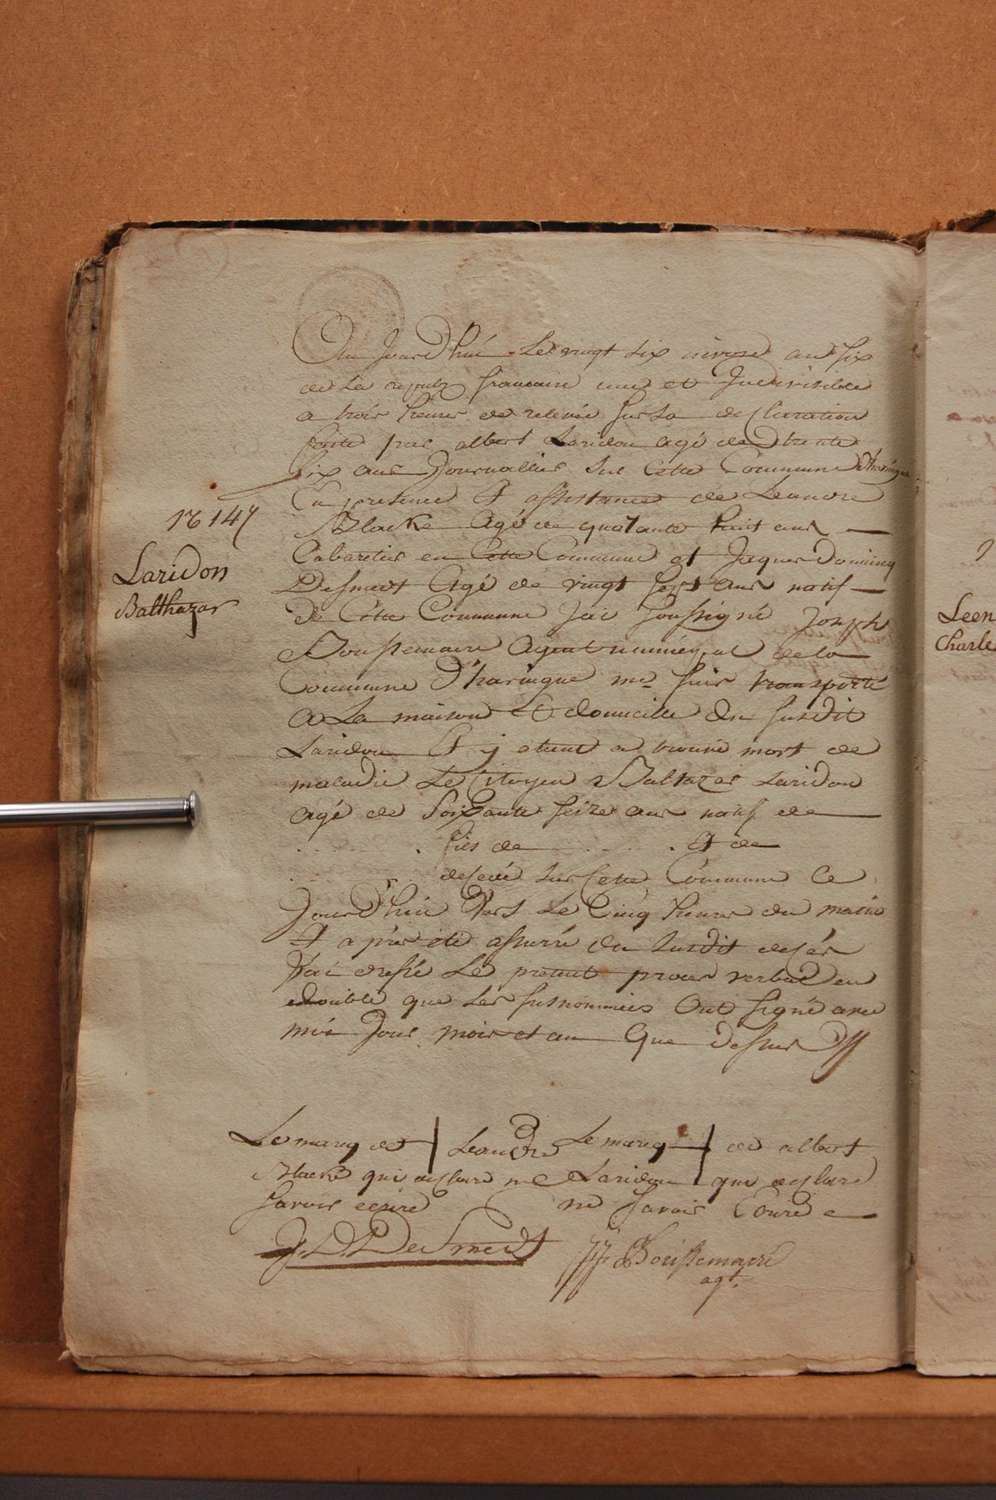 Au Jourd'hui Le vingt six nivose an six
de La republ francaise une et Indivisible
a trois heures de relevée sur La declaration
faite par albert Laridon agé de trente
six ans Journallier sur Cette Commune d'haringue
En presence et assistance de Leandre
Blacke Agé de quatante huit ans
Cabaretier en Cette Commune et Jaques Dominiq
DeSmedt Agé de vingt sept ans natif
de Cette Commune Jai soussigné Joseph
Boussemaere Agent municipal de la
Commune D'haringue me suis transporté
a La maison et domicille du susdit
Laridon Et y etant a trouvé mort de
maladie Le Citoyen Baltazar Laridon
agé de soixante seize ans natif de
fils de Et de
desedé sur Cette Commune Ce
Jourd'hui Vers Le Cinq heures du matin
Et apres été assurré du susdit desés
J'ai dressé Le present proces verbal en
double que Les susnommés Ont signé avec
moi Jour mois et an Que dessus
16 147
Laridon
Balthazar
Le marq de Leandre Le marq de albert
Blacke qui declare ne Laridon qui declare
savoir ecrire ne savoir Ecrire
J D DeSmedt JJ Boussemaere
agt.
Leen
Charle